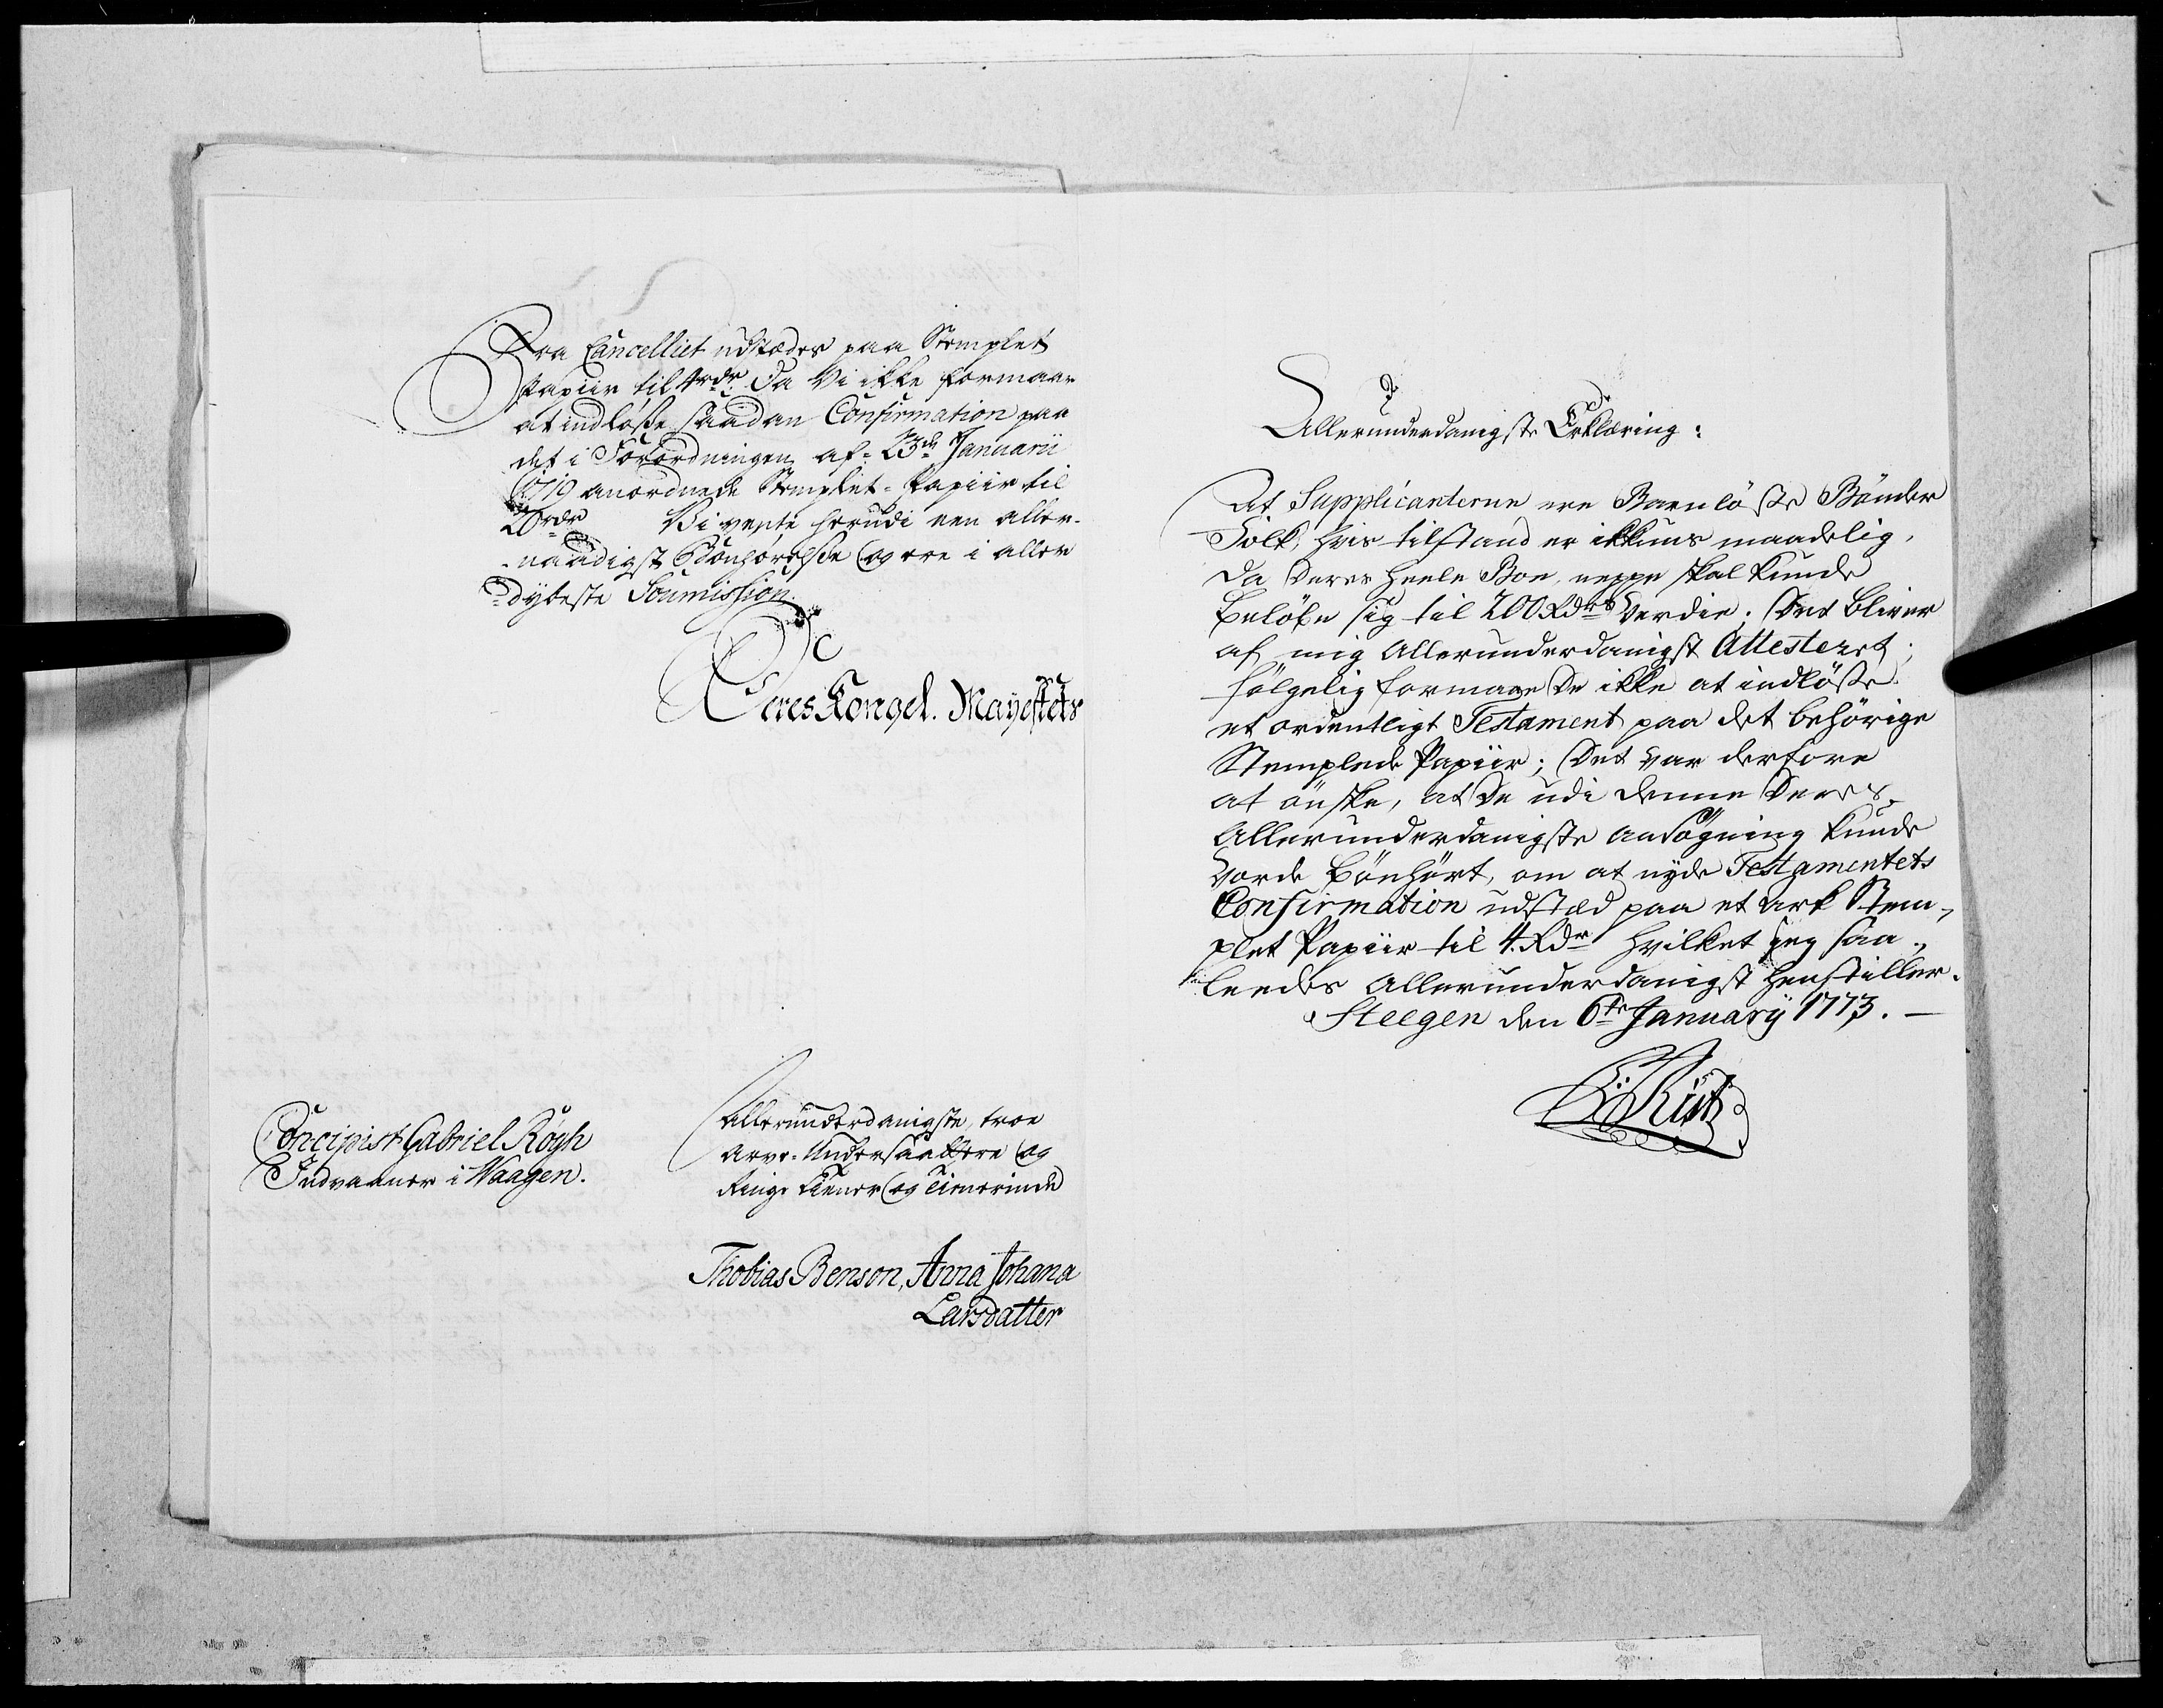 Fra Cancelliet udstædes paa Stemplet
Papiir til 4rdr. Da Vi ikke formaar
at indløse saadan Confirmation paa
det i Forordningen af 23de Januarii
1719 anordnede Stemplet-Papiir til
20rdr Vi vente herudi een aller-
-naadigst Bønhørelse og ere i aller
-dybeste Soumission
Deres Kongel. Mayestets
Concipist Gabriel Røgh
Indvaaner i Waagen.
Allerunderdanigste, troe
Arve-Undersaattere og
Ringe tiener og tienerinde
Thobias Benson, Anna Johana
Larsdatter
Allerunderdanigste Erklæring:
At Supplicanterne ere Barnløse Bönder
Folk, hvis tilstand er ikkuns maadelig,
da deres heele Boe neppe skal kunde
beløbe sig til 200 Rdrs Verdie; Det bliver
af mig allerunderdanigst Attesteret;
følgelig formaae De ikke at indløse
et ordentligt Testament paa det behörige
Stemplede Papiir; Det var derfore
at önske, at De udi denne Deres
allerunderdanigste ansøgning kunde
vorde bönhört, om at nyde Testamentets
Confirmation udstæd paa et ark Stem-
plet Papiir til 4 Rdr hvilket jeg saa-
leedes allerunderdanigst henstiller.
Steegen den 6te January 1773. —